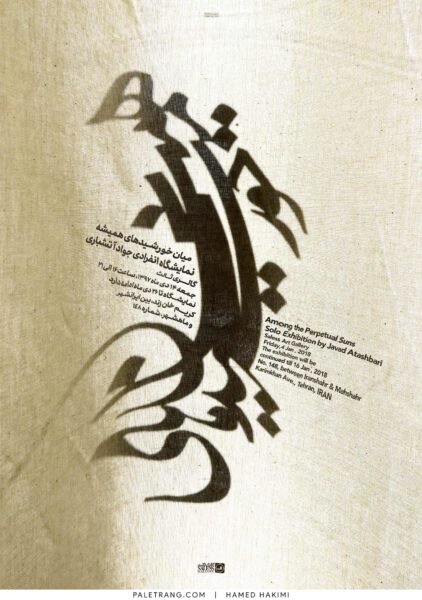 میان خورشیدهای همیشه
نمایشگاه انفرادی جواد آتشباری
گالری ثالث
جمعه ۱۴ دی ماه ۱۳۹۷، ساعت ۱۶ الی ۲۱
نمایشگاه تا ۲۶ دی ماه ادامه دارد
کریم خان زند، بین ایرانشهر
و ماهشهر، شماره ۱۴۸
Among the Perpetual Suns
Solo Exhibition by Javad Atashbari
Saless Art Gallery
Friday, 4 Jan, 2018
The exhibition will be
continued till 16 Jan, 2018
No. 148, between Iranshahr & Mahshahr
Karimkhan Ave., Tehran, IRAN
PALETRANG.COM | HAMED HAKIMI